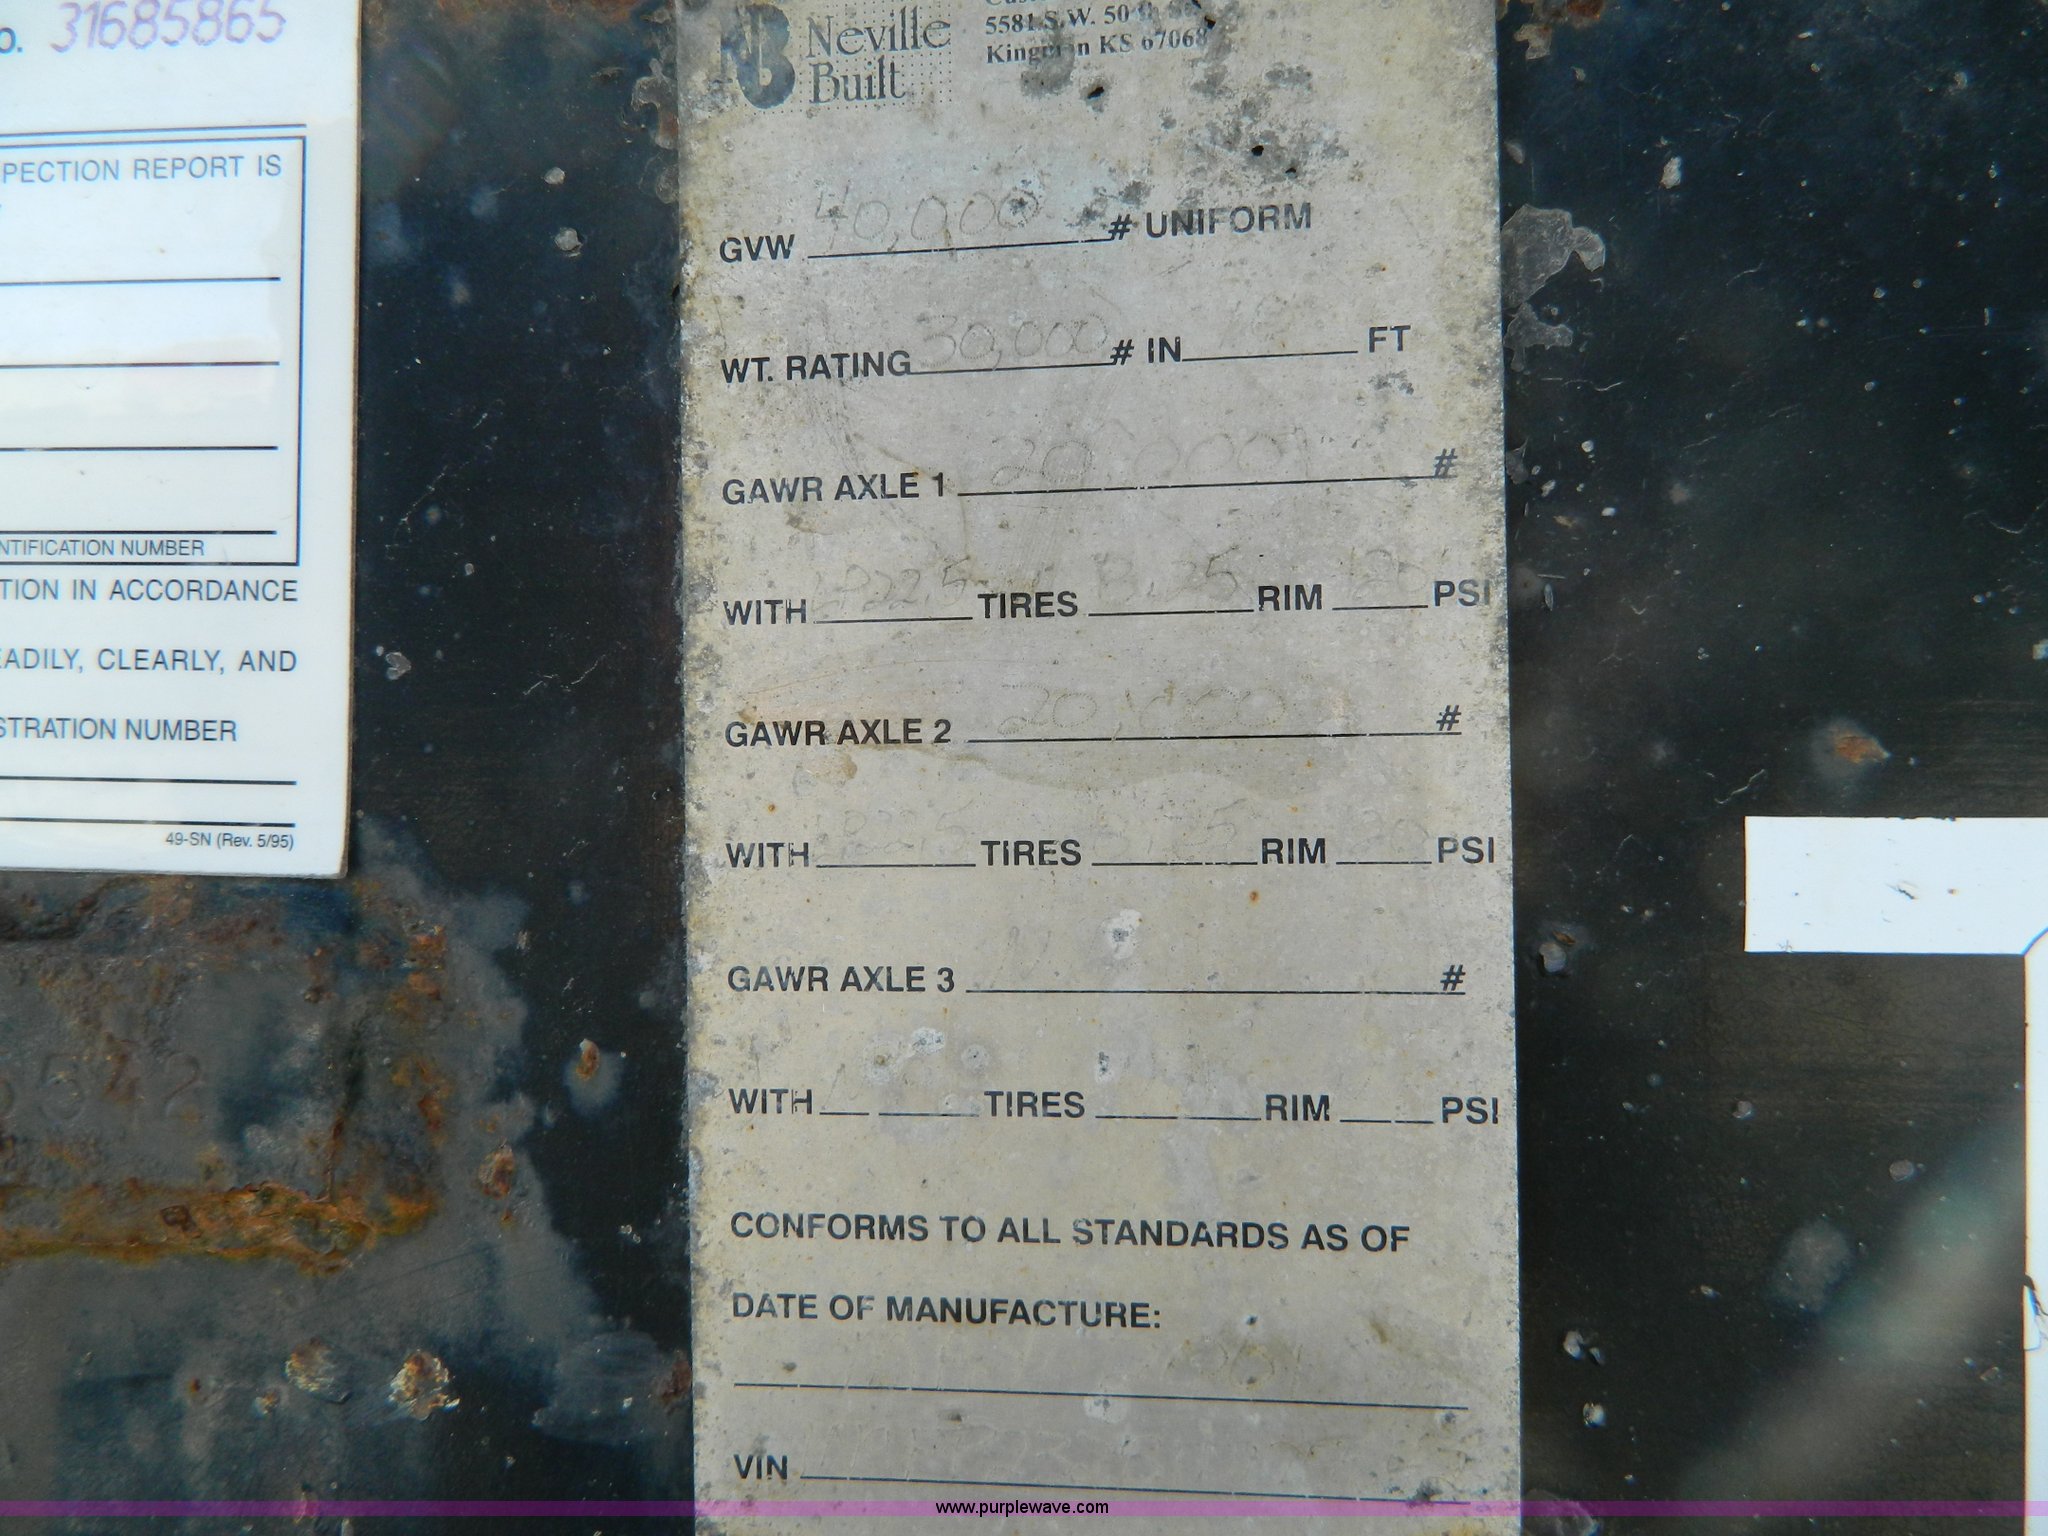 o. 31685865
PECTION REPORT IS
NTIFICATION NUMBER
TION IN ACCORDANCE
EADILY, CLEARLY, AND
STRATION NUMBER
49-SN (Rev. 5/95)
Neville
Built
5581 S.W. 50
Kingman KS 67068
GVW 40,000 # UNIFORM
WT. RATING 30,000 # IN FT
GAWR AXLE 1 20,000 #
WITH TIRES 8.25 RIM PSI
GAWR AXLE 2 20,000 #
WITH TIRES RIM PSI
GAWR AXLE 3 #
WITH TIRES RIM PSI
CONFORMS TO ALL STANDARDS AS OF
DATE OF MANUFACTURE:
VIN
www.purplewave.com